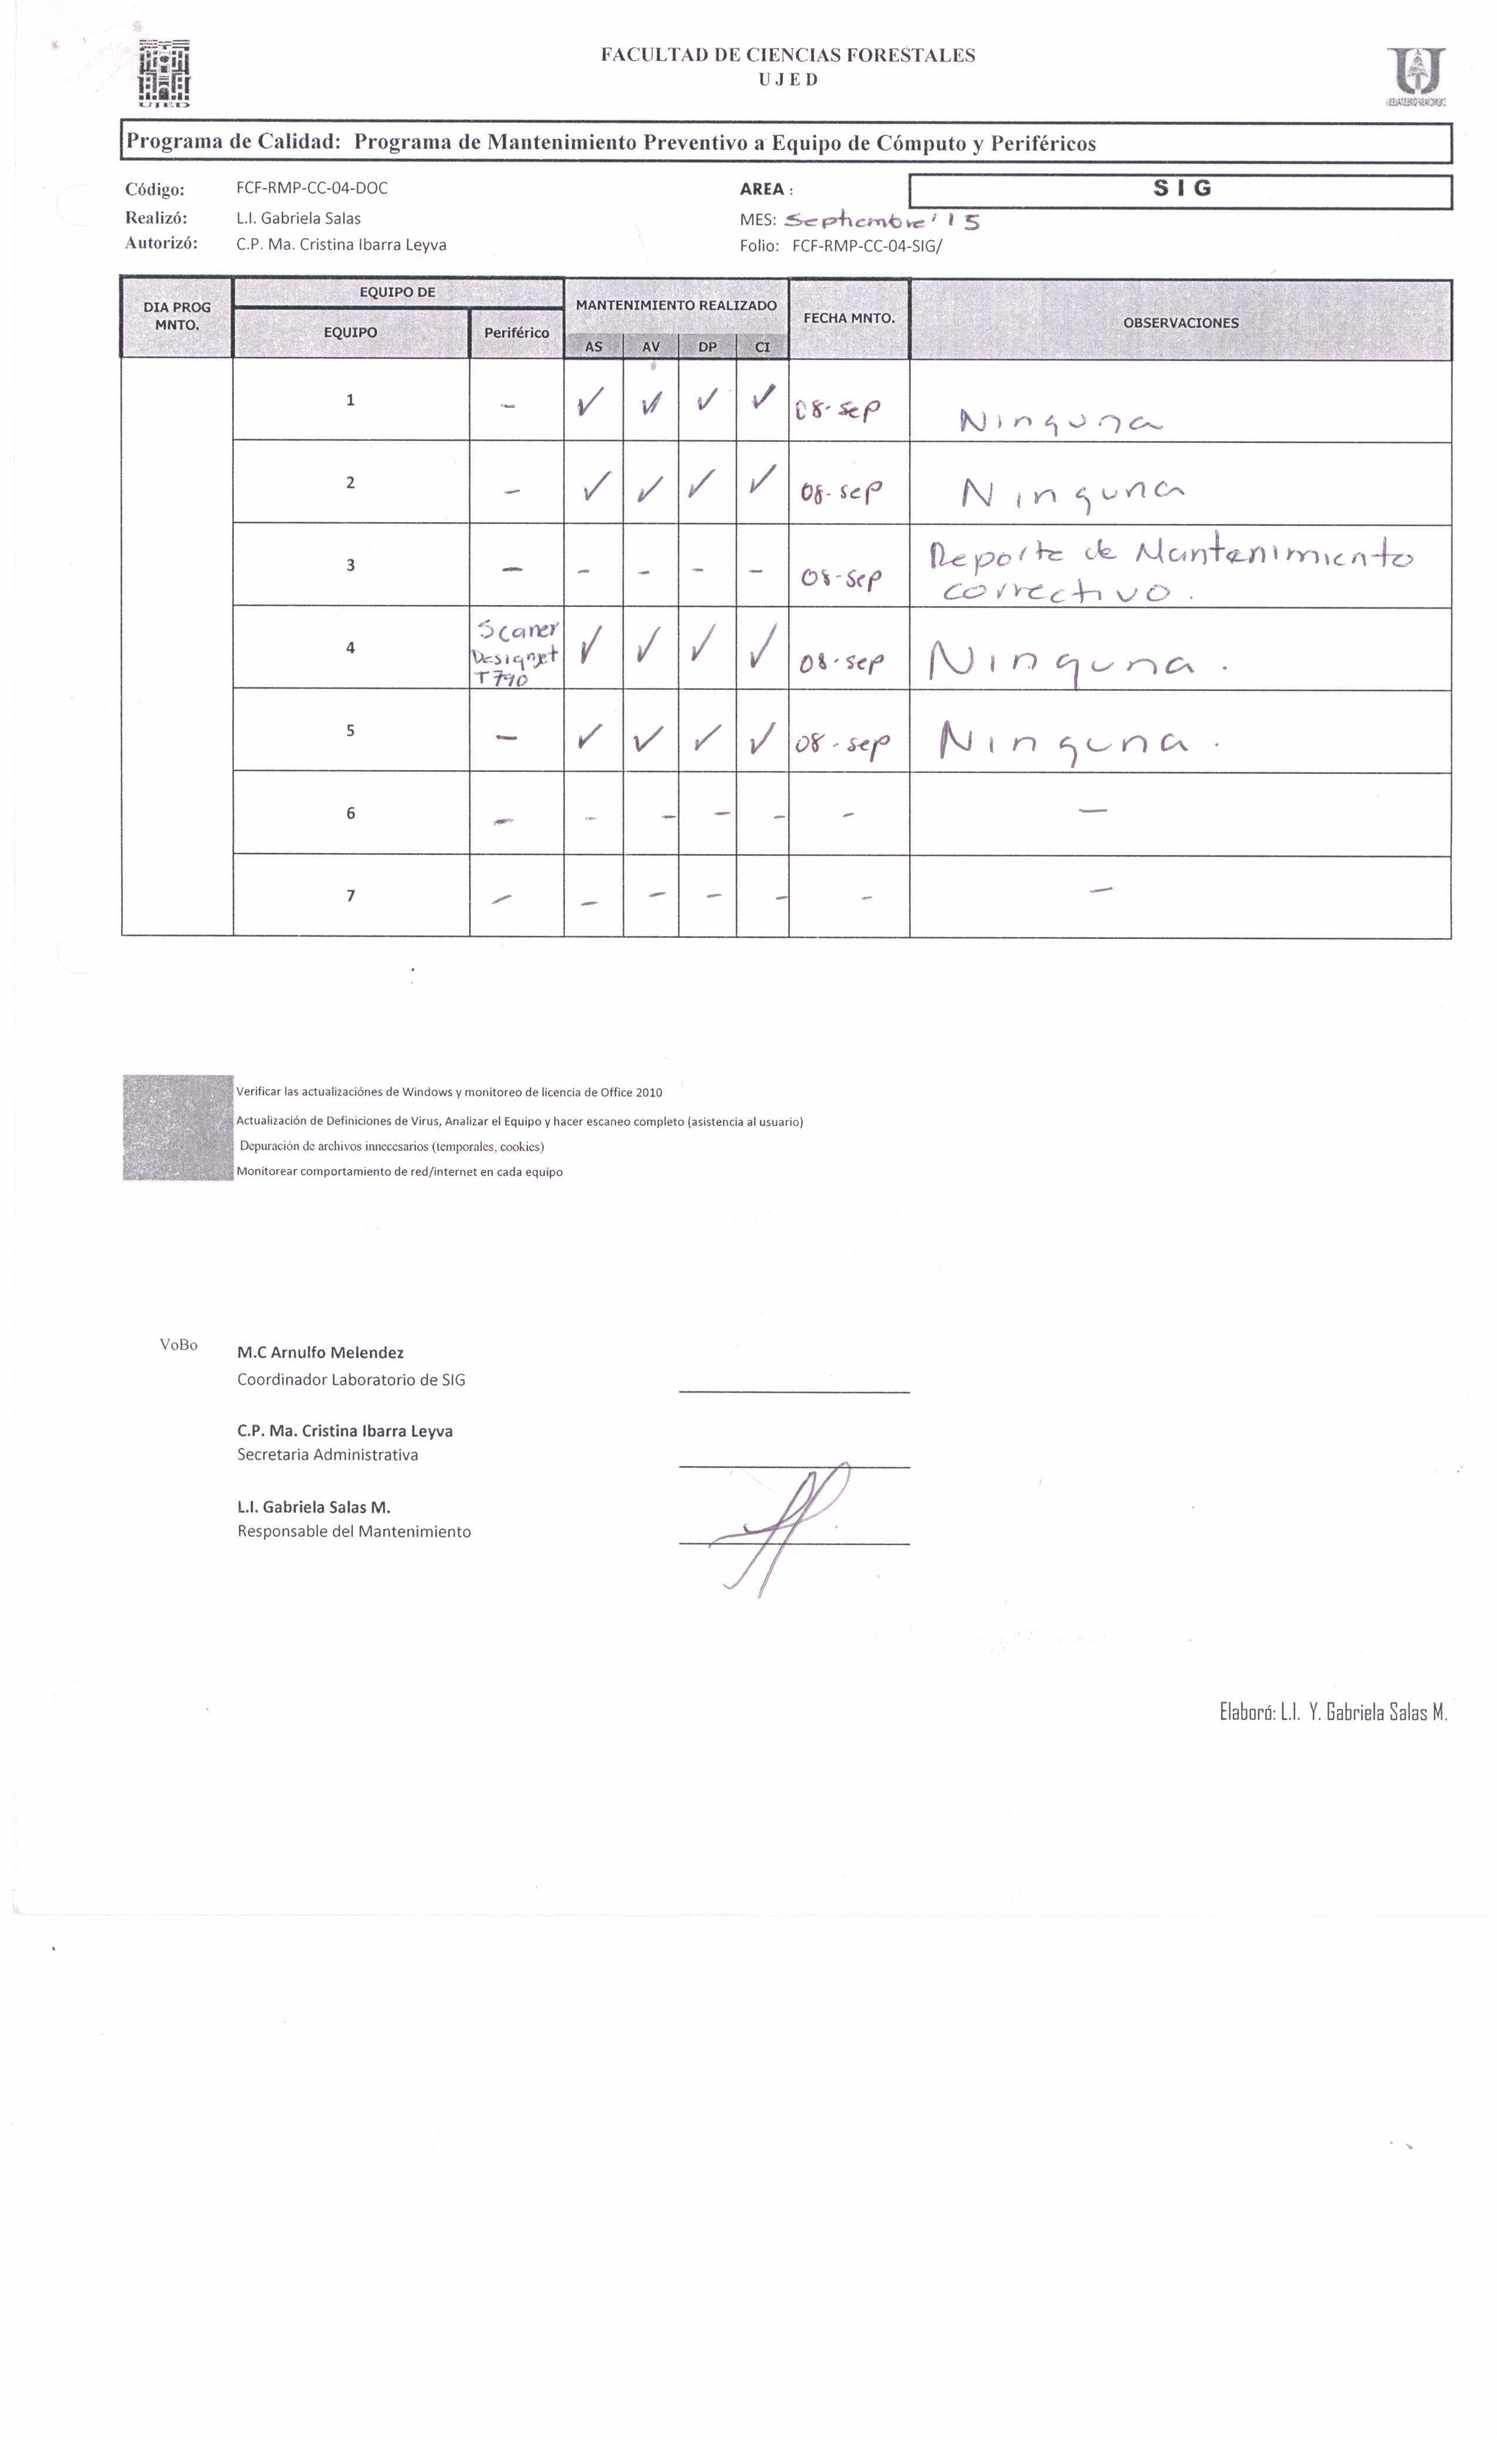 FACULTAD DE CIENCIAS FORESTALES
UJED
UJED
Programa de Calidad: Programa de Mantenimiento Preventivo a Equipo de Cómputo y Periféricos
Código: FCF-RMP-CC-04-DOC AREA : SIG
Realizó: L.I. Gabriela Salas MES: Septiembre '15
Autorizó: C.P. Ma. Cristina Ibarra Leyva Folio: FCF-RMP-CC-04-SIG/
DIA PROG MNTO. EQUIPO DE MANTENIMIENTO REALIZADO FECHA MNTO. OBSERVACIONES
EQUIPO Periférico AS AV DP CI
1 - ✓ ✓ ✓ ✓ 08-sep Ninguna
2 - ✓ ✓ ✓ ✓ 08-sep Ninguna
3 - - - - - 08-sep Reporte de Mantenimiento
correctivo.
4 Scaner Designjet T790 ✓ ✓ ✓ ✓ 08-sep Ninguna.
5 - ✓ ✓ ✓ ✓ 08-sep Ninguna.
6 - - - - - - -
7 - - - - - - -
Verificar las actualizaciónes de Windows y monitoreo de licencia de Office 2010
Actualización de Definiciones de Virus, Analizar el Equipo y hacer escaneo completo (asistencia al usuario)
Depuración de archivos innecesarios (temporales, cookies)
Monitorear comportamiento de red/internet en cada equipo
VoBo M.C Arnulfo Melendez
Coordinador Laboratorio de SIG
C.P. Ma. Cristina Ibarra Leyva
Secretaria Administrativa
L.I. Gabriela Salas M.
Responsable del Mantenimiento
Elaboró: L.I. Y. Gabriela Salas M.